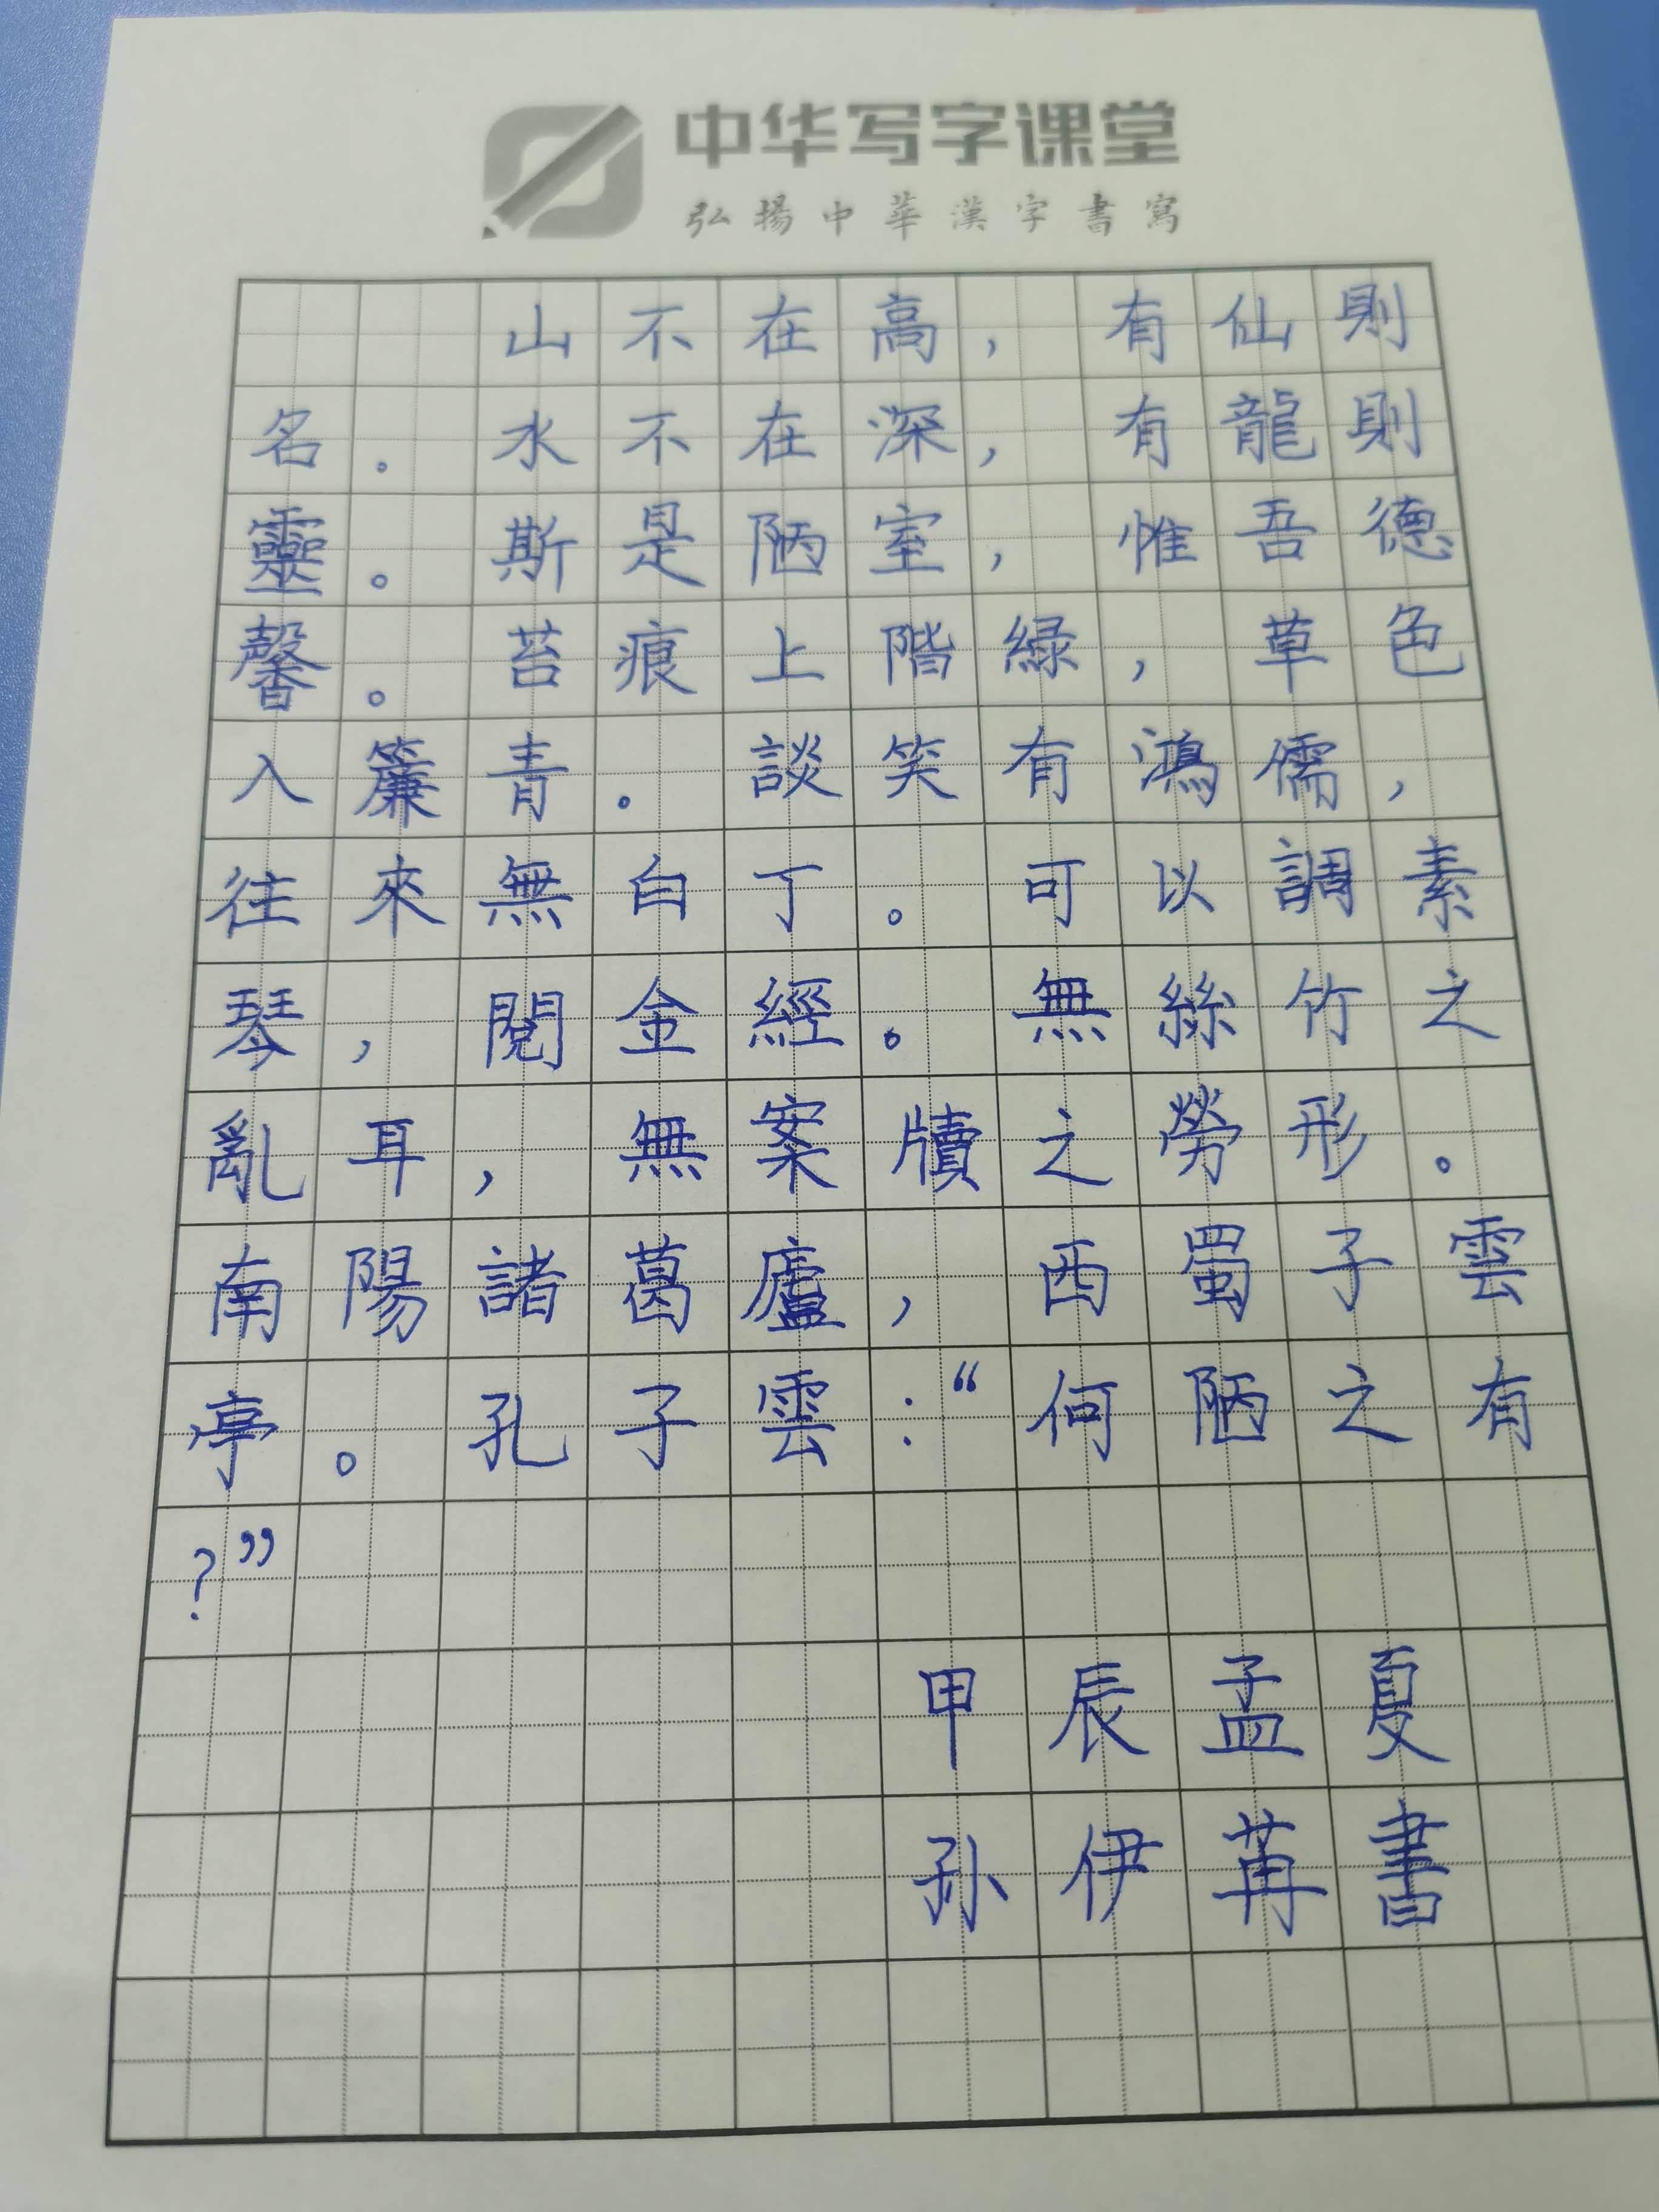 中华写字课堂
弘揚中華漢字書寫
山不在高，有仙則
名。水不在深，有龍則
靈。斯是陋室，惟吾德
馨。苔痕上階緑，草色
入簾青。談笑有鴻儒，
往來無白丁。可以調素
琴，閱金經。無絲竹之
亂耳，無案牘之勞形。
南陽諸葛廬，西蜀子雲
亭。孔子雲：“何陋之有
？”
甲辰孟夏
孙伊苒書